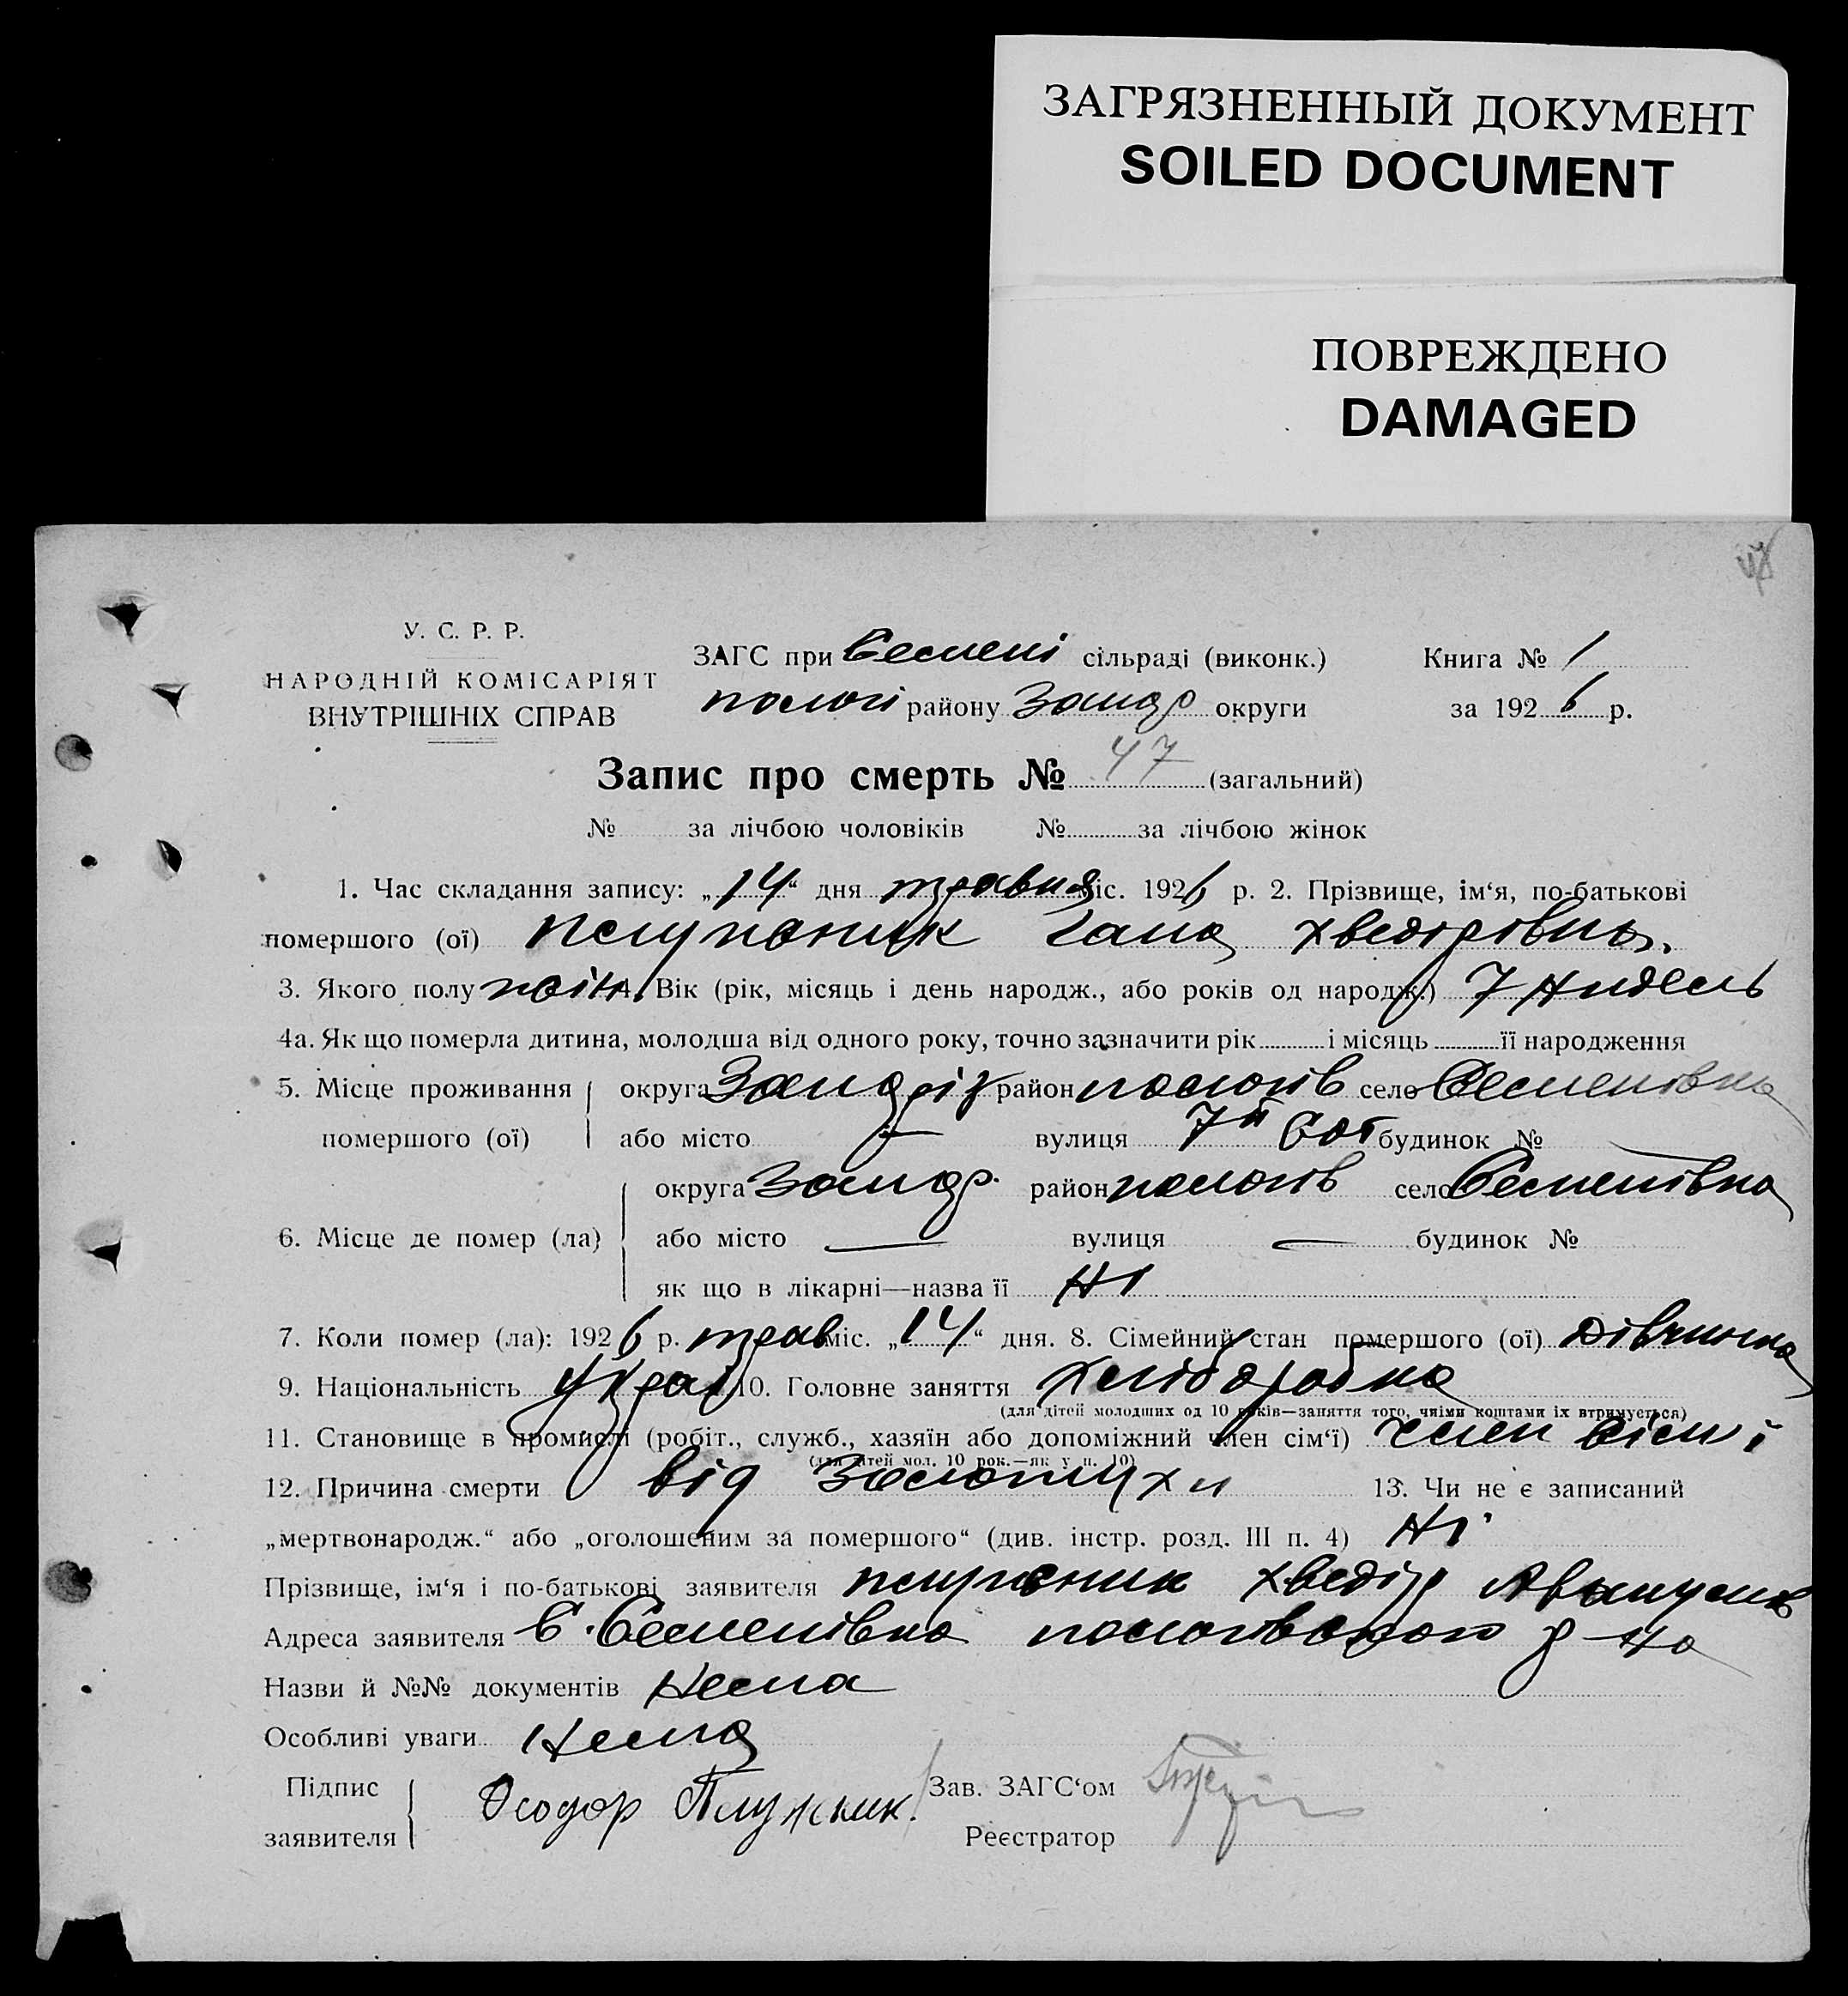 ЗАГРЯЗНЕННЫЙ ДОКУМЕНТ
SOILED DOCUMENT
ПОВРЕЖДЕНО
DAMAGED
У. С. Р. Р.
НАРОДНІЙ КОМІСАРІЯТ
ВНУТРІШНІХ СПРАВ
ЗАГС при Семені сільраді (виконк.)
пологі району Запор округи
Книга № 1
за 1926 р.
Запис про смерть № 47 (загальний)
№ за лічбою чоловіків № за лічбою жінок
1. Час складання запису: „14“ дня травня міс. 1926 р. 2. Прізвище, ім‘я, по-батькові
помершого (ої) Гана Хведорівна
3. Якого полу жін. 4. Вік (рік, місяць і день народж., або років од народж.) 7 Нидель
4а. Як що померла дитина, молодша від одного року, точно зазначити рік і місяць її народження
5. Місце проживання помершого (ої) округа район пологів село Семенівка
або місто — вулиця 7й Сот будинок № —
6. Місце де помер (ла) округа Запор. район пологів село Семенівка
або місто — вулиця — будинок №
як що в лікарні—назва її Ні
7. Коли помер (ла): 1926 р. трав міс. „14“ дня. 8. Сімейний стан помершого (ої) Дівчинка
9. Національність Украі 10. Головне заняття Хліборобка
(для дітей молодших од 10 років—заняття того, чиїми коштами їх втримується)
11. Становище в промислі (робіт., служб., хазяїн або допоміжний член сім‘ї) член сімі
(для дітей мол. 10 рок.—як у п. 10)
12. Причина смерти від Золотухи 13. Чи не є записаний
„мертвонародж.“ або „оголошеним за помершого“ (див. інстр. розд. III п. 4) Ні
Прізвище, ім‘я і по-батькові заявителя Хведір
Адреса заявителя С. Семенівка пологовского р-на
Назви й №№ документів Нема
Особливі уваги Нема
Підпис заявителя Федор Плужник
Зав. ЗАГС‘ом
Реєстратор